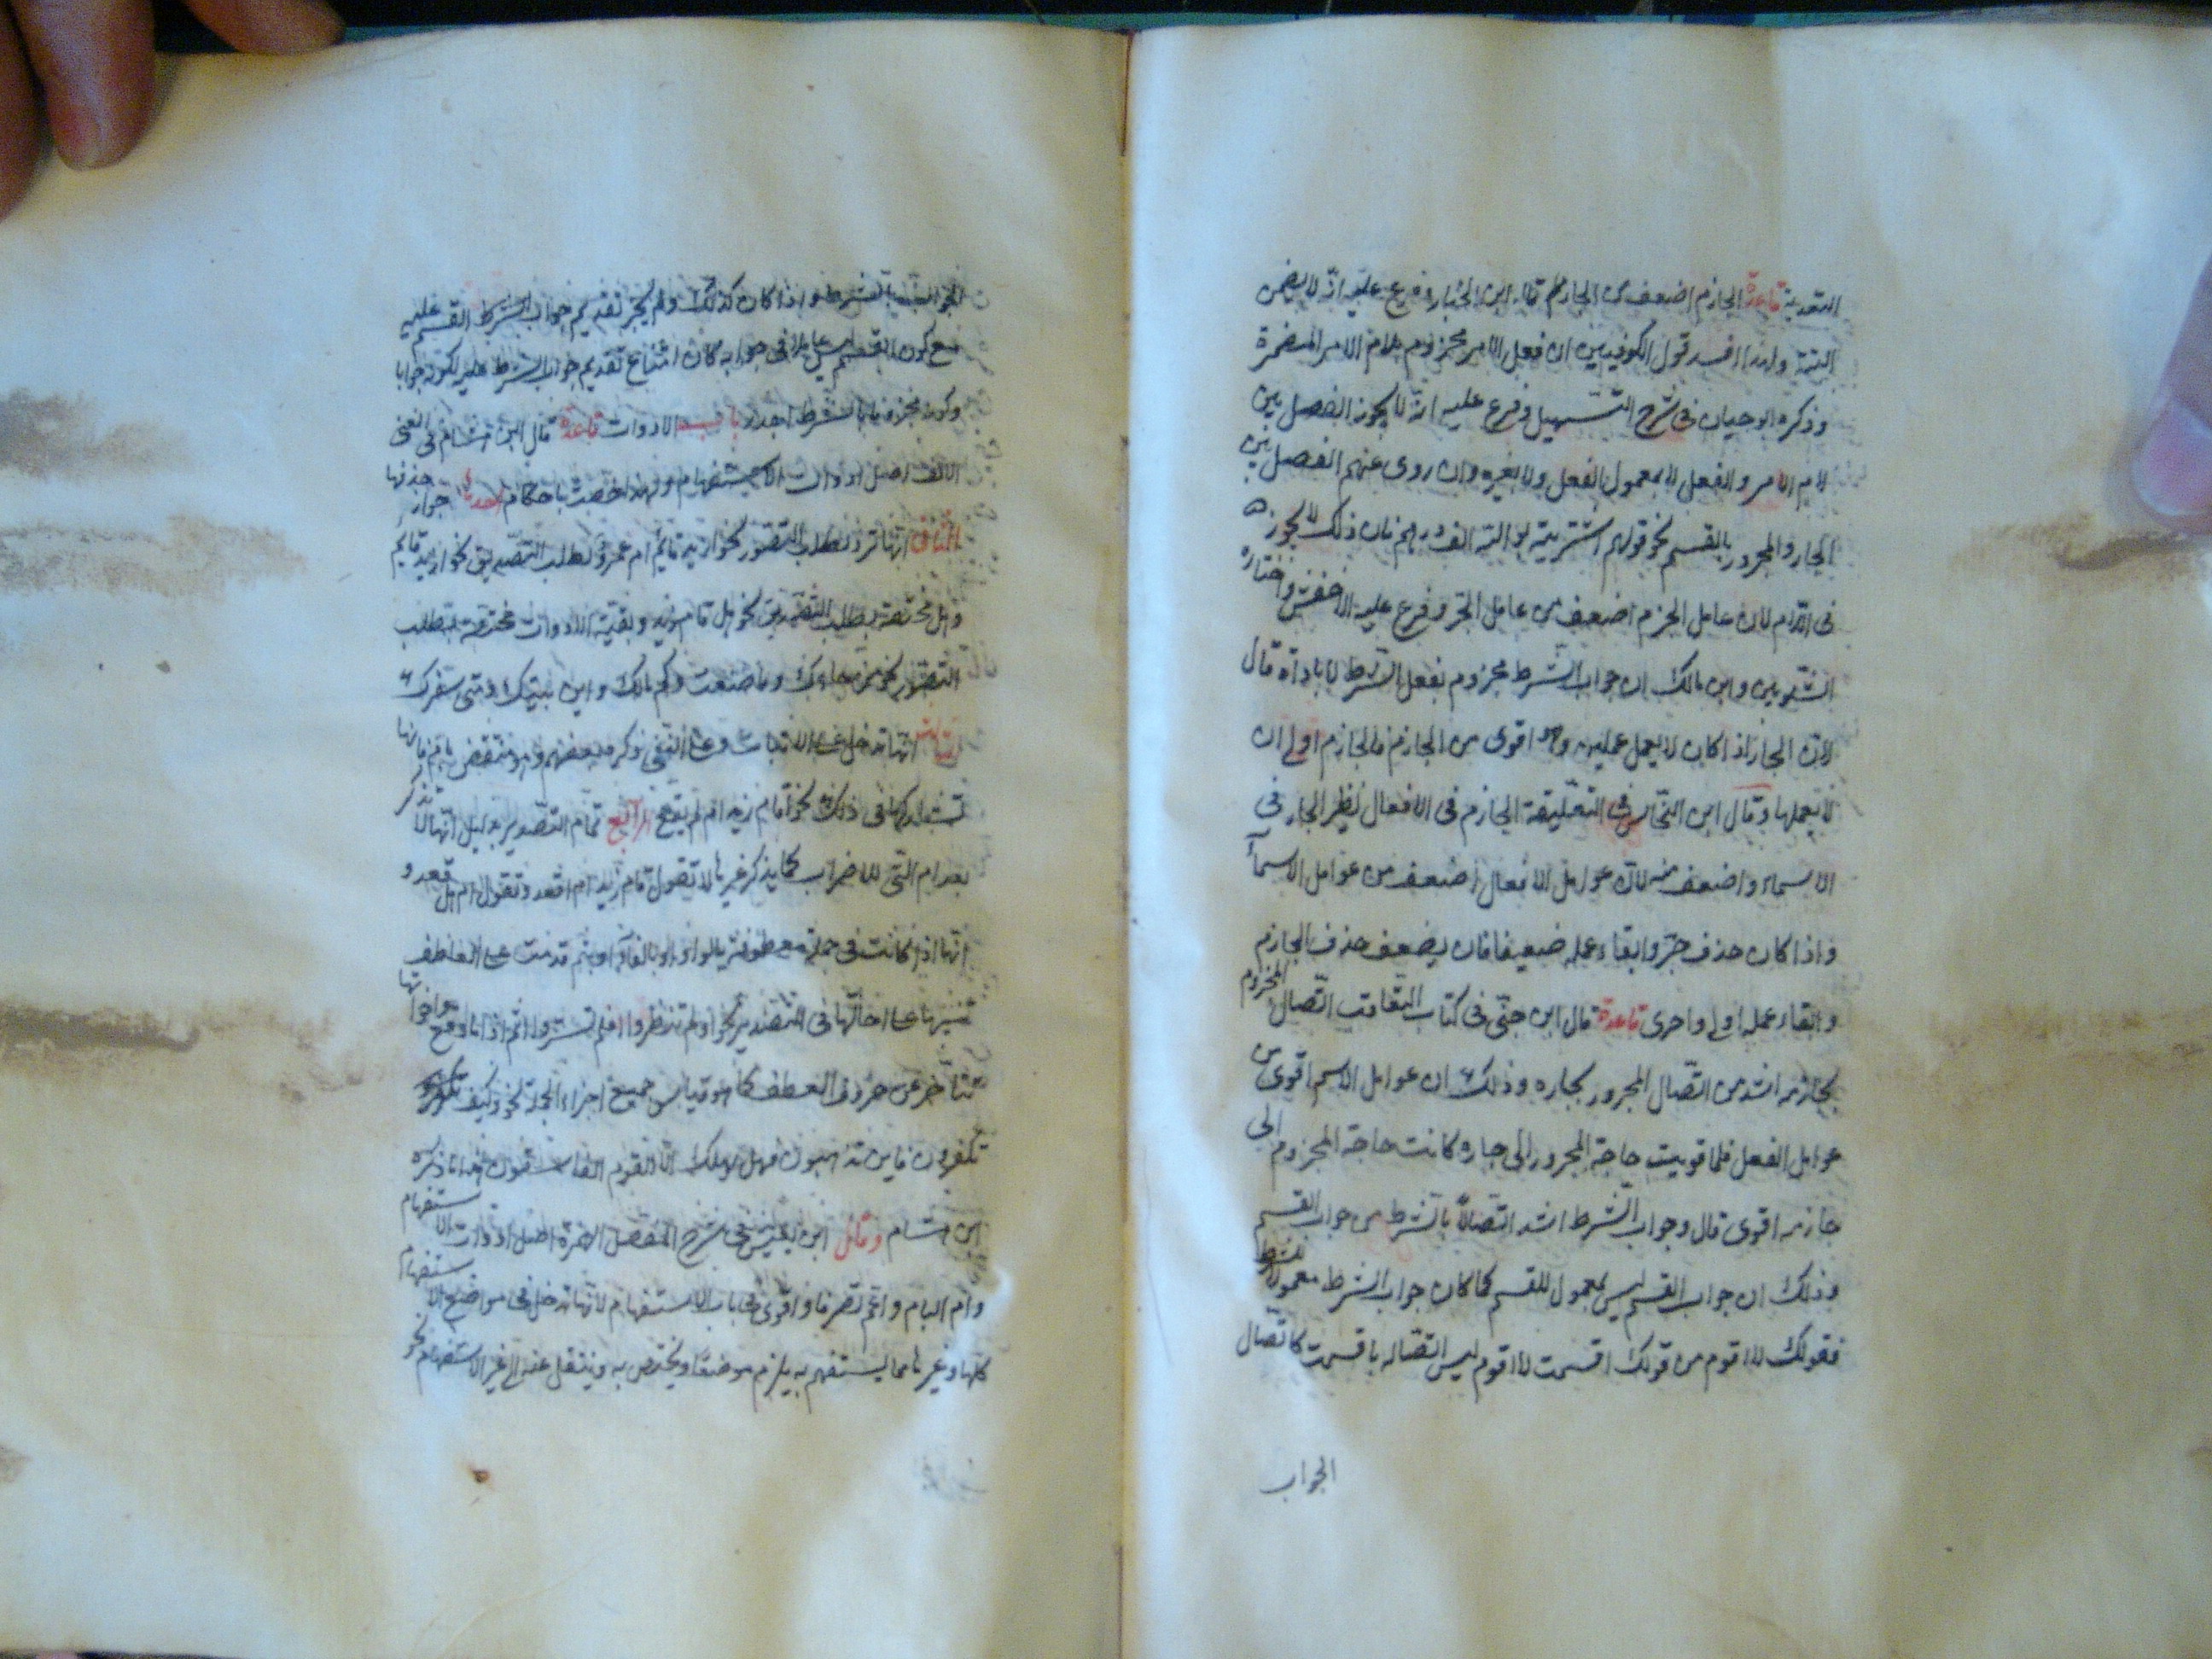 التعدية قاعدة الجازم اضعف من الجار قاله ابن الخباز وفرع عليه انه لا يضمر
البتة ولهذا افسد قول الكوفيين ان فعل الامر مجزوم بلام الامر المضمرة
وذكره ابو حيان فى شرح التسهيل وفرع عليه انه لا يجوز الفصل بين
لام الامر والفعل لا بمعمول الفعل ولا بغيره وان روى عنهم الفصل بين
الجار والمجرور بالقسم نحو قولهم اشتريته بوالله الف درهم فان ذلك لا يجوز
فى اللام لان عامل الجزم اضعف من عامل الجر وفرع عليه الاخفش واختاره
الشلوبين وابن مالك ان جواب الشرط مجزوم بفعل الشرط لا باداة قال
لان الجار اذا كان لا يعمل عملين وهو اقوى من الجازم فالجازم اولى ان
لا يعملها وقال ابن النحاس فى التعليقة الجازم فى الافعال نظير الجار فى
الاسماء واضعف منه لان عوامل الافعال اضعف من عوامل الاسماء
واذا كان حذف حرف الجر وابقاء عمله ضعيفا فان يضعف حذف الجازم
وابقاء عمله اولى واحرى قاعدة قال ابن جنى فى كتاب التعاقب اتصال المجزوم
بجازمه اشد من اتصال المجرور بجاره وذلك ان عوامل الاسم اقوى من
عوامل الفعل فلما قويت حاجة المجرور الى جاره كانت حاجة المجزوم الى
جازمه اقوى قال وجواب الشرط اشد اتصالا بالشرط من جواب القسم
وذلك ان جواب القسم ليس بمعمول للقسم كما كان جواب الشرط معمولا للشرط
فقولك لا اقوم من قولك اقسمت لا اقوم ليس اتصاله باقسمت كاتصال
الجواب
الجواب بالشرط واذا كان كذلك ولم يجز تقديم جواب القسم عليه
مع كون القسم ليس عاملا فى جوابه كان امتناع تقديم جواب الشرط عليه لكونه جوابا
وكونه مجزوما بالشرط اجدر باب الادوات قاعدة قال ابن هشام فى المغنى
الالف اصل ادوات الاستفهام ولهذا خصت باحكام احدها جواز حذفها
الثانى انها ترد لطلب التصور نحو ازيد قائم ام عمرو ولطلب التصديق نحو ازيد قائم
وهل مختصة بطلب التصديق نحو هل قام زيد وبقية الادوات مختصة بطلب
التصور نحو من جاءك وما صنعت وكم مالك واين بيتك ومتى سفرك
الثالث انها تدخل على الاثبات وعلى النفى ذكره بعضهم وهو منتقض بام فانها
تشاركها فى ذلك نحو اقام زيد ام لم يقم الرابع تمام التصدير بدليل انها لا تذكر
بعد ام التى للاضراب كما يذكر غيرها لا تقول اقام زيد ام اقعد وتقول ام هل قعد و
انها اذا كانت فى جملة معطوفة بالواو او بالفاء او بثم قدمت على العاطف
تنبيها على اصالتها فى التصدير نحو اولم ينظروا افلم يسيروا اثم اذا ما وقع واخواتها
تتأخر عن حروف العطف كما هو قياس جميع اجزاء الجملة نحو وكيف
تكفرون فاين تذهبون فهل يهلك الا القوم الفاسقون هذا ما ذكره
ابن هشام وقال ابن يعيش فى شرح المفصل الهمزة اصل ادوات الاستفهام
وام الباب واعم تصرفا واقوى فى باب الاستفهام لانها تدخل فى مواضع الاستفهام
كلها وغيرها مما يستفهم به يلزم موضعا ويختص به وينتقل عنه الى غير الاستفهام نحو